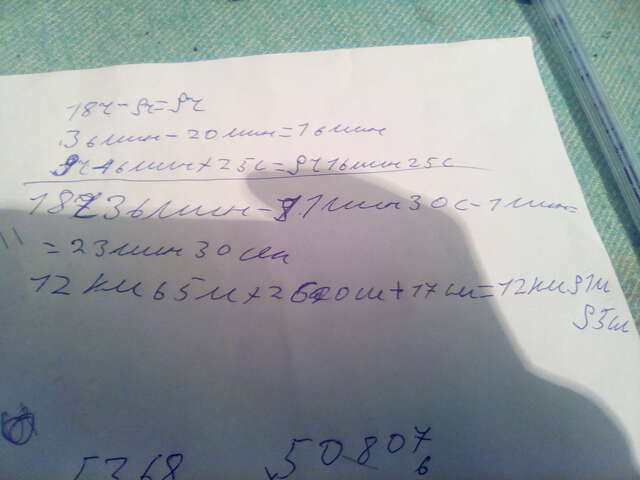 18ч-9ч=9ч
36мин-20мин=16мин
9ч16мин+25с=9ч16мин25с
18ч36мин-11мин30с-1мин=
=23мин30сек
12км65м+2600см+17см=12км91м
95см
5368
50807
6